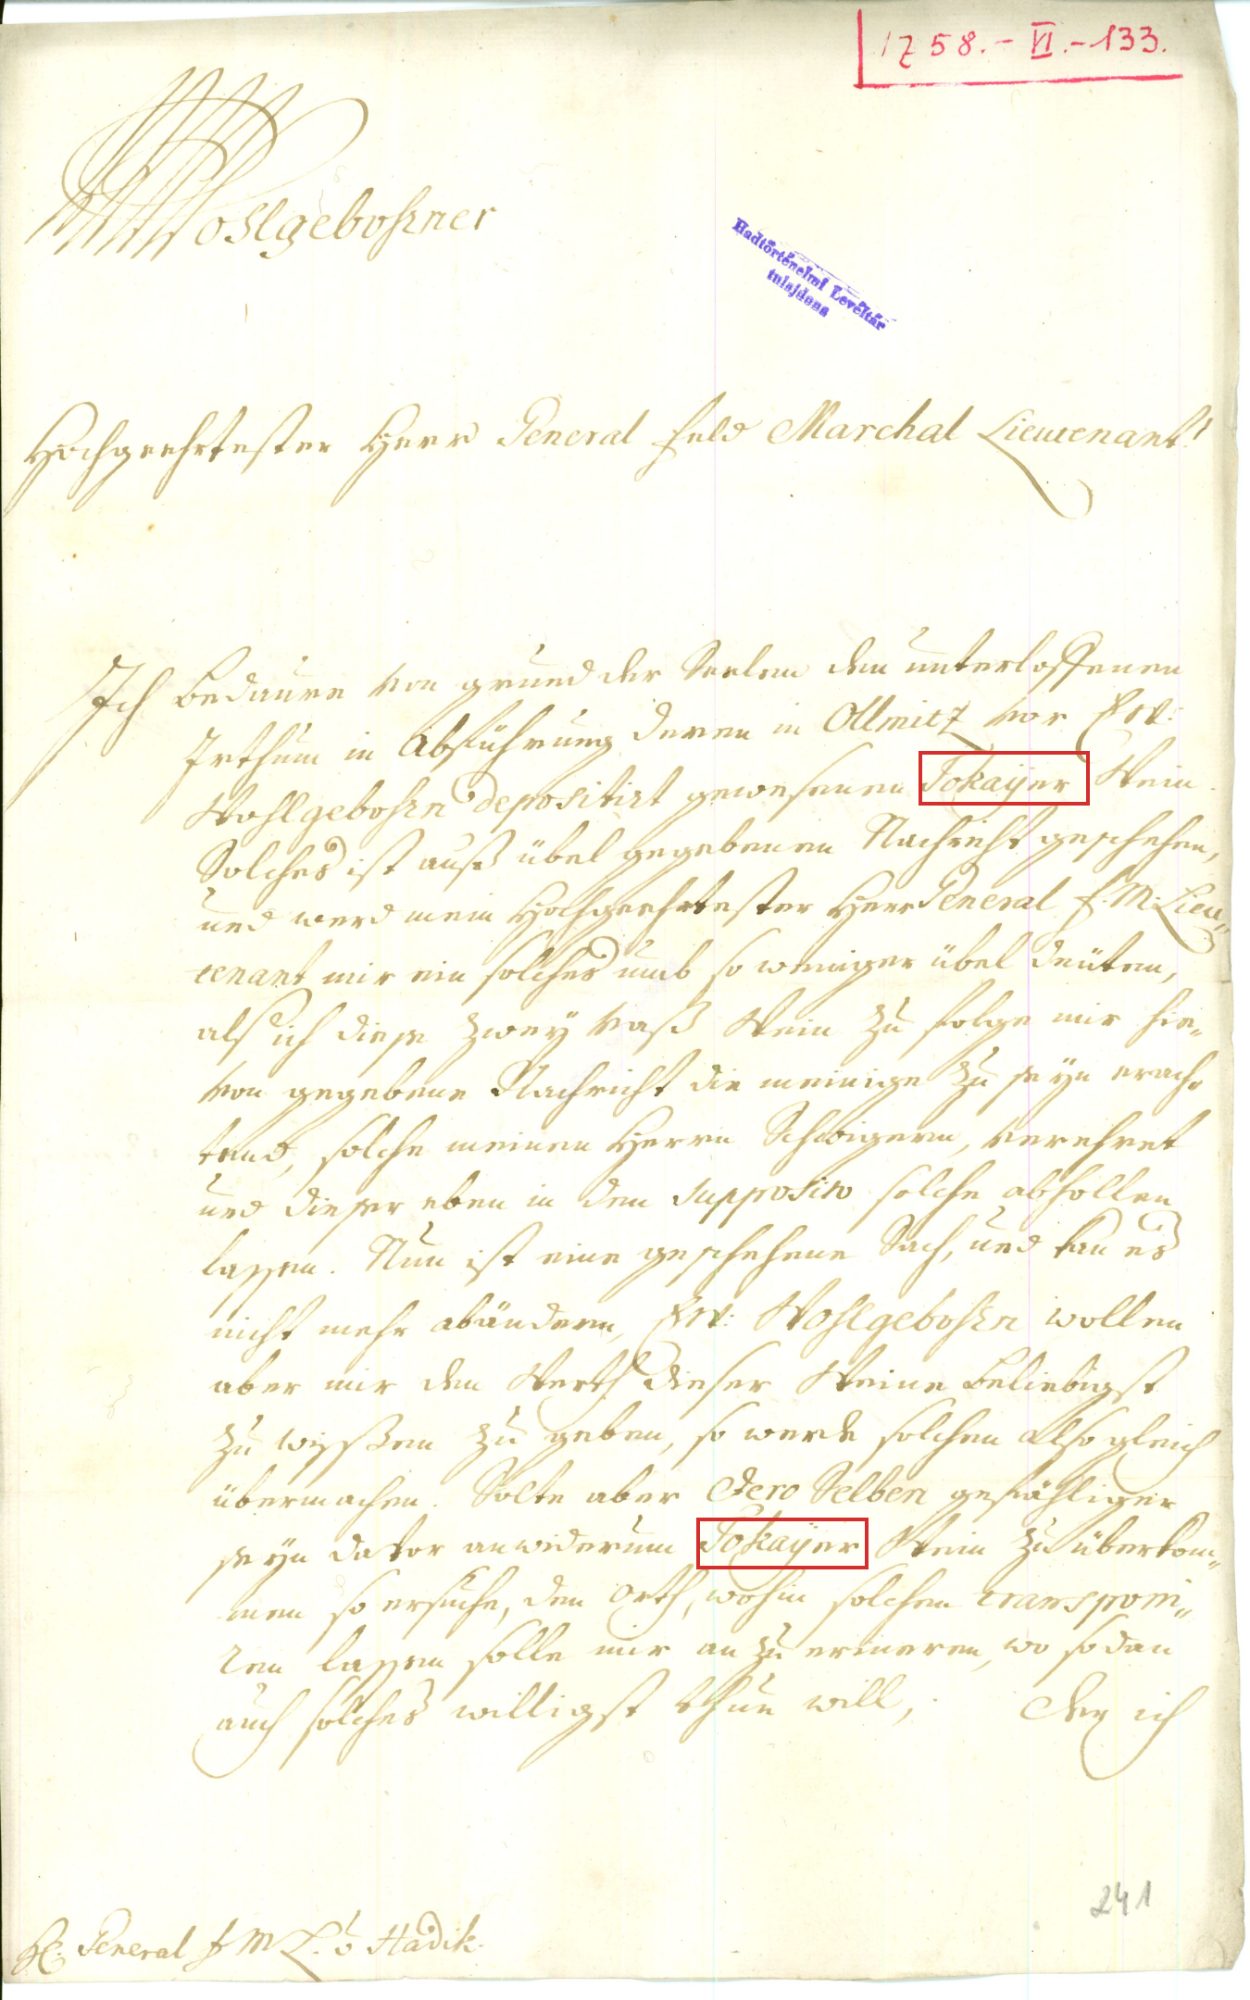 1758.-VI.-133.
Wohlgebohrner
Hadtörténelmi Levéltár
tulajdona
Hochgeehrtester Herr General Feld Marchal Lieutenant!
Ich bedaure von grund der Seelen den unterloffenen
Irthum in Abführung deren in Ollmitz vor Ew:
Wohlgebohrn depositirt gewesenen Tokayer Wein.
Solches ist auß übel gegebenen Nachricht geschehen,
und werd mein Hochgeehrtester Herr General F.M. Lieu„
tenant mir ein solches umb so weniger übel deüten,
als ich diese zwey Vaß Wein zu folge mir hie„
von gegebene Nachricht die meinige zu seyn erach„
tend, solche meinen Herrn Schwigern, verehret
und dieser eben in den supposito solche abhollen
lassen. Nun ist eine geschehene Sach, und kan es
nicht mehr abändern, Ew: Wohlgebohrn wollen
aber mir den Werth dieser Weine beliebigst
zu wissen zu geben, so werde solchen also gleich
übermachen. Solte aber Dero Selben gefähliger
seyn davor anwiderum Tokayer Wein zu überkom„
men so ersuche, den Orth, wohin solchen transponi„
ren lassen solle mir an zu erineren, wo sodan
auch solches willigst thun will, Der ich
H: General F M L: v Hadik.
241